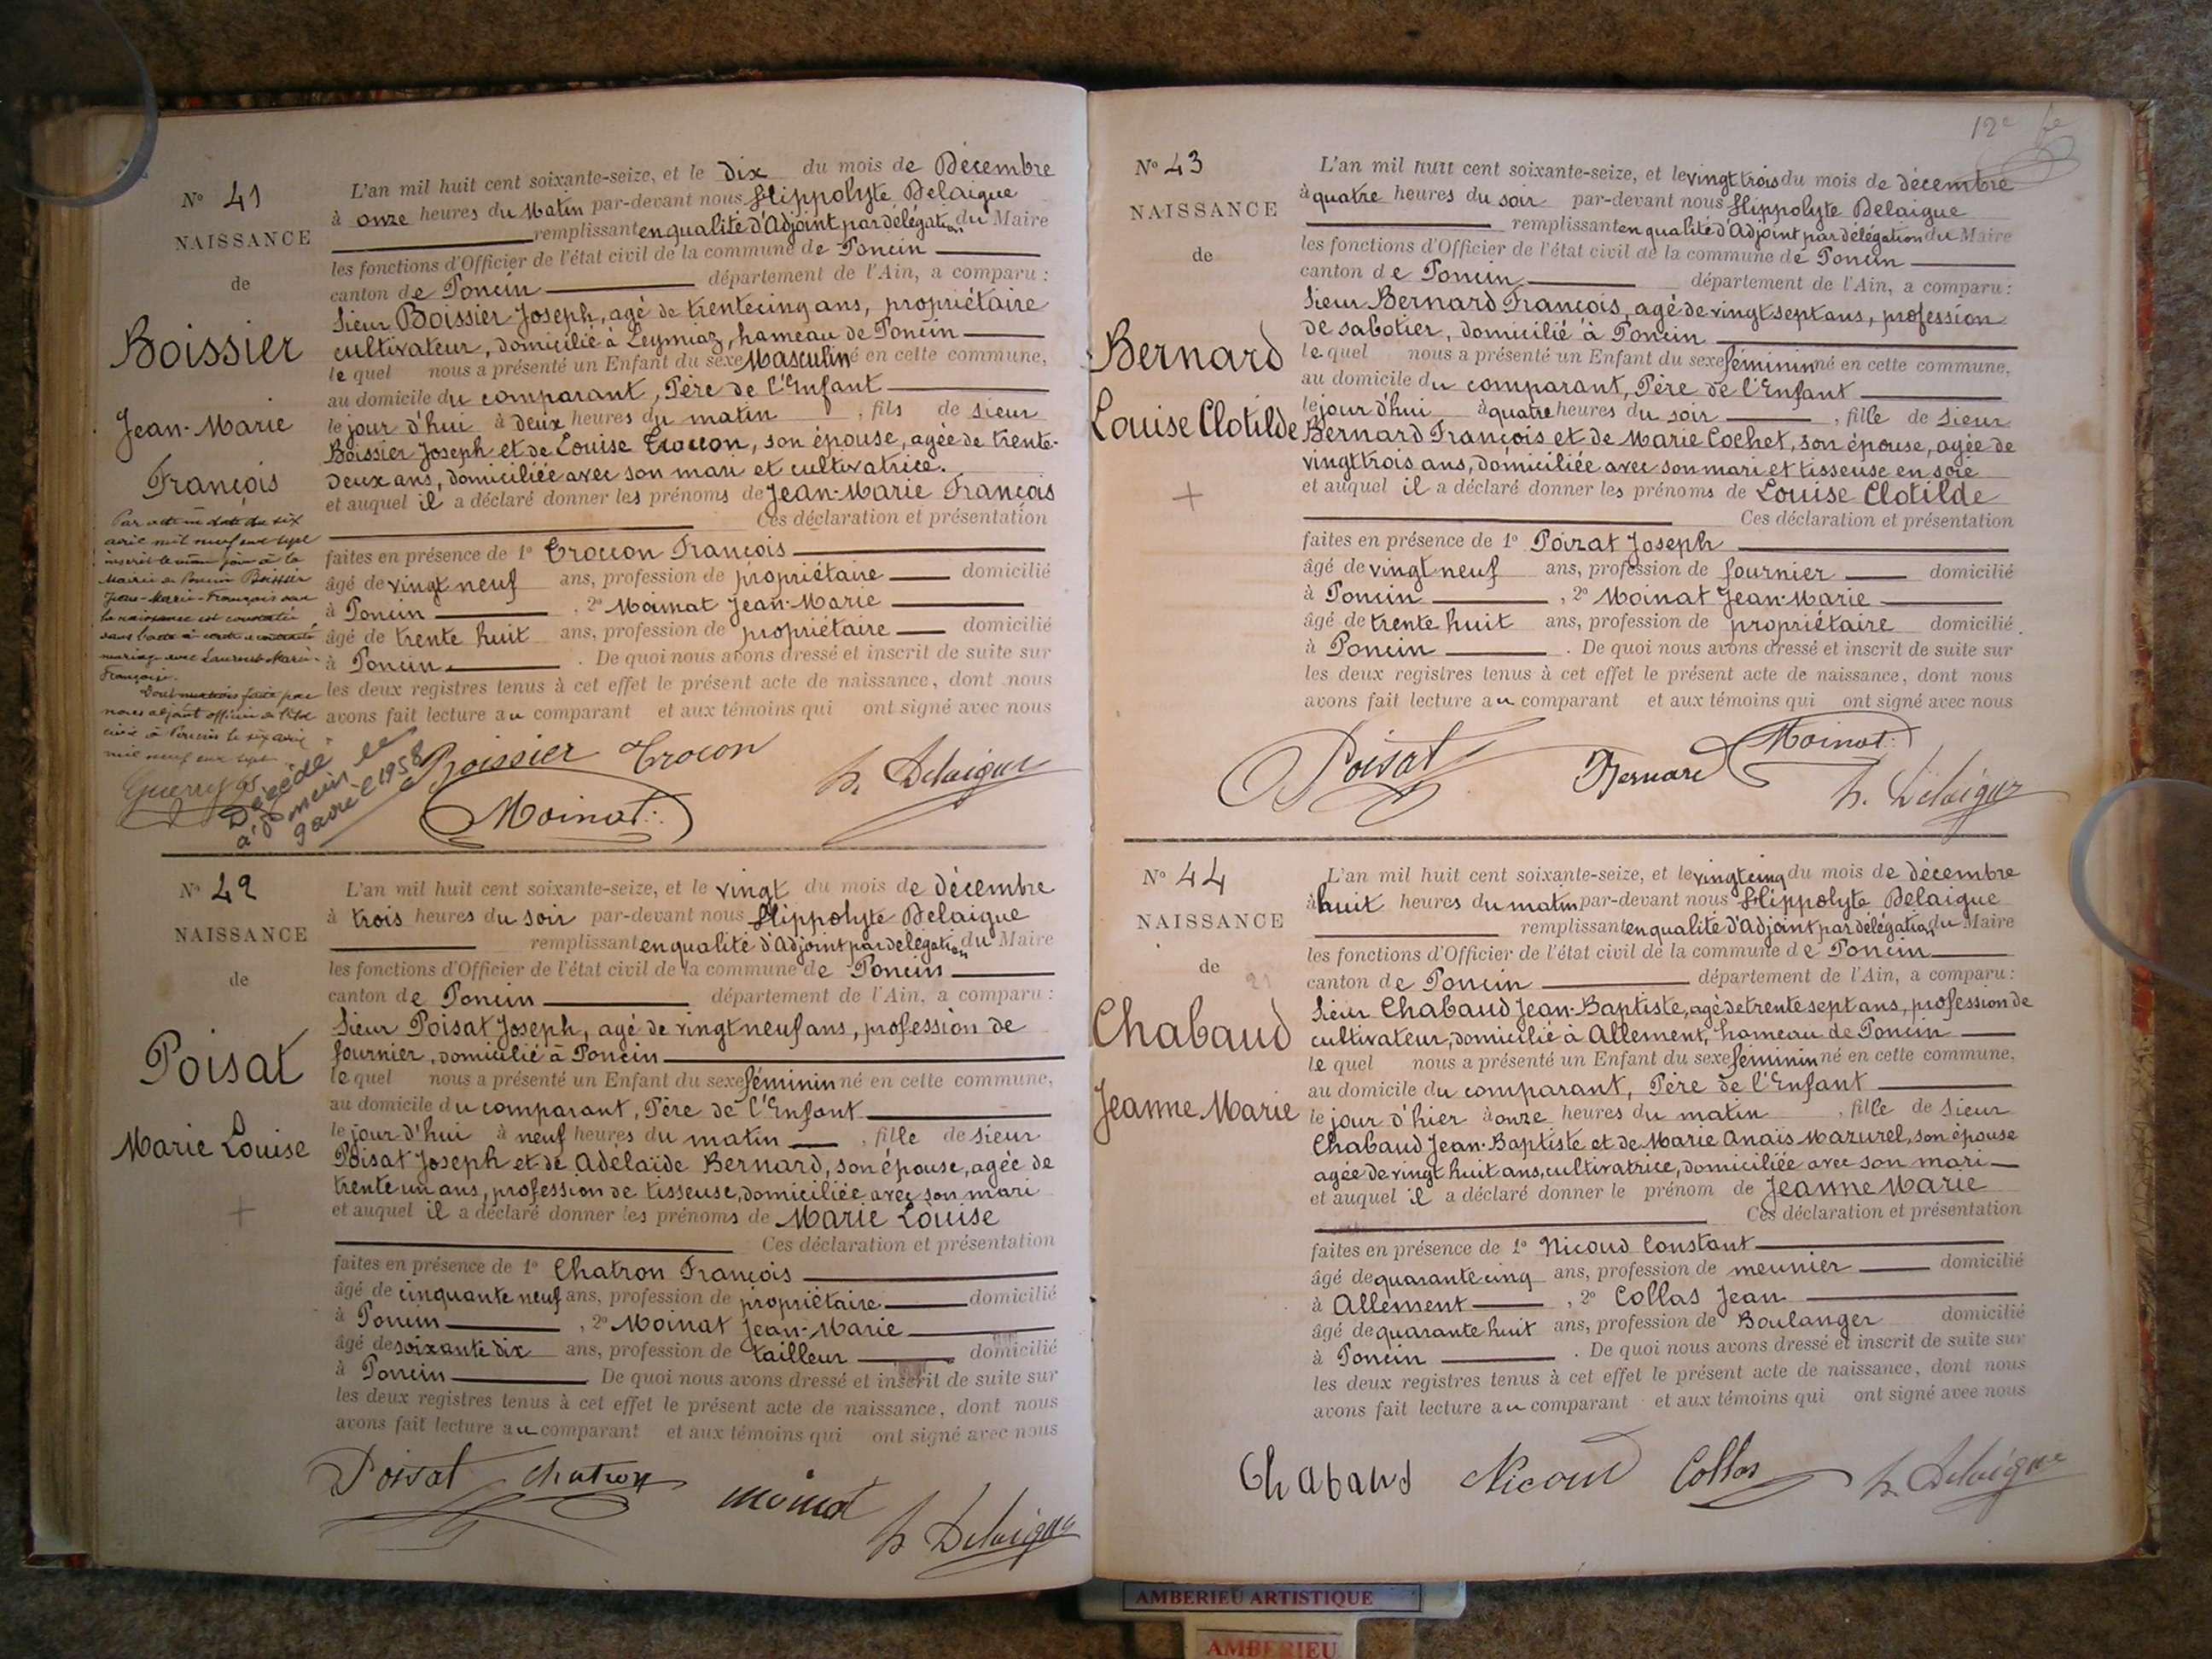 N° 41
NAISSANCE
de
Boissier
Jean-Marie
François
Par acte en date du six
avril mil neuf cent sept
inscrit le même jour à la
Mairie de Poncin Boissier
Jean-Marie-François dont
la naissance est constatée
dans l'acte ci-contre a contracté
mariage avec Laurent Marie-
Françoise.
Dont mention faite par
nous adjoint officier de l'état
civil à Poncin le six avril
mil neuf cent sept
Décédé
à Poncin le
9 avril 1958
L'an mil huit cent soixante-seize, et le dix du mois de Décembre
à onze heures du Matin par-devant nous Hippolyte Delaigue
remplissant en qualité d'Adjoint par délégation du Maire
les fonctions d'Officier de l'état civil de la commune de Poncin
canton de Poncin département de l'Ain, a comparu :
Sieur Boissier Joseph, agé de trente cinq ans, propriétaire
cultivateur, domicilié à Leymiaz, hameau de Poncin
lequel nous a présenté un Enfant du sexe Masculin né en cette commune,
au domicile du comparant, Père de l'Enfant
le jour d'hui à deux heures du matin , fils de Sieur
Boissier Joseph et de Louise Trocon, son épouse, agée de trente-
Deux ans, domiciliée avec son mari et cultivatrice.
et auquel il a déclaré donner les prénoms de Jean-Marie François
Ces déclaration et présentation
faites en présence de 1° Trocon François
âgé de vingt neuf ans, profession de propriétaire domicilié
à Poncin , 2° Moinat Jean-Marie
âgé de trente huit ans, profession de propriétaire domicilié
à Poncin . De quoi nous avons dressé et inscrit de suite sur
les deux registres tenus à cet effet le présent acte de naissance, dont nous
avons fait lecture au comparant et aux témoins qui ont signé avec nous
Boissier Trocon
Moinat
h. Delaigue
N° 42
NAISSANCE
de
Poisat
Marie Louise
L'an mil huit cent soixante-seize, et le vingt du mois de décembre
à trois heures du soir par-devant nous Hippolyte Delaigue
remplissant en qualité d'Adjoint par délégation du Maire
les fonctions d'Officier de l'état civil de la commune de Poncin
canton de Poncin département de l'Ain, a comparu :
Sieur Poisat Joseph, agé de vingt neuf ans, profession de
fournier, domicilié à Poncin
lequel nous a présenté un Enfant du sexe féminin né en cette commune,
au domicile du comparant, Père de l'Enfant
le jour d'hui à neuf heures du matin , fille de Sieur
Poisat Joseph et de Adelaïde Bernard, son épouse, agée de
trente un ans, profession de tisseuse, domiciliée avec son mari
et auquel il a déclaré donner les prénoms de Marie Louise
Ces déclaration et présentation
faites en présence de 1° Chatron François
âgé de cinquante neuf ans, profession de propriétaire domicilié
à Poncin , 2° Moinat Jean-Marie
âgé de soixante dix ans, profession de tailleur domicilié
à Poncin De quoi nous avons dressé et inscrit de suite sur
les deux registres tenus à cet effet le présent acte de naissance, dont nous
avons fait lecture au comparant et aux témoins qui ont signé avec nous
Poisat Chatron moinat
h Delaigue
12e
N° 43
NAISSANCE
de
Bernard
Louise Clotilde
L'an mil huit cent soixante-seize, et le vingt trois du mois de décembre
à quatre heures du soir par-devant nous Hippolyte Delaigue
remplissant en qualité d'Adjoint par délégation du Maire
les fonctions d'Officier de l'état civil de la commune de Poncin
canton de Poncin département de l'Ain, a comparu :
Sieur Bernard François, agé de vingt sept ans, profession
de sabotier, domicilié à Poncin
lequel nous a présenté un Enfant du sexe féminin né en cette commune,
au domicile du comparant, Père de l'Enfant
le jour d'hui à quatre heures du soir , fille de Sieur
Bernard François et de Marie Cochet, son épouse, agée de
vingt trois ans, domiciliée avec son mari et tisseuse en soie
et auquel il a déclaré donner les prénoms de Louise Clotilde
Ces déclaration et présentation
faites en présence de 1° Poizat Joseph
âgé de vingt neuf ans, profession de fournier domicilié
à Poncin , 2° Moinat Jean-Marie
âgé de trente huit ans, profession de propriétaire domicilié
à Poncin . De quoi nous avons dressé et inscrit de suite sur
les deux registres tenus à cet effet le présent acte de naissance, dont nous
avons fait lecture au comparant et aux témoins qui ont signé avec nous
Poisat Bernard Moinat
h. Delaigue
N° 44
NAISSANCE
de
21
Chabaud
Jeanne Marie
L'an mil huit cent soixante-seize, et le vingt cinq du mois de décembre
à huit heures du matin par-devant nous Hippolyte Delaigue
remplissant en qualité d'Adjoint par délégation du Maire
les fonctions d'Officier de l'état civil de la commune de Poncin
canton de Poncin département de l'Ain, a comparu :
Sieur Chabaud Jean-Baptiste, agé de trente sept ans, profession de
cultivateur, domicilié à Allement, hameau de Poncin
lequel nous a présenté un Enfant du sexe féminin né en cette commune,
au domicile du comparant, Père de l'Enfant
le jour d'hier à onze heures du matin , fille de Sieur
Chabaud Jean-Baptiste et de Marie Anaïs Mazurel, son épouse
agée de vingt huit ans, cultivatrice, domiciliée avec son mari
et auquel il a déclaré donner le prénom de Jeanne Marie
Ces déclaration et présentation
faites en présence de 1° Nicoud Constant
âgé de quarante cinq ans, profession de meunier domicilié
à Allement , 2° Collas Jean
âgé de quarante huit ans, profession de Boulanger domicilié
à Poncin . De quoi nous avons dressé et inscrit de suite sur
les deux registres tenus à cet effet le présent acte de naissance, dont nous
avons fait lecture au comparant et aux témoins qui ont signé avec nous
Chabaud Nicoud Collas h. Delaigue
AMBERIEU ARTISTIQUE
AMBERIEU